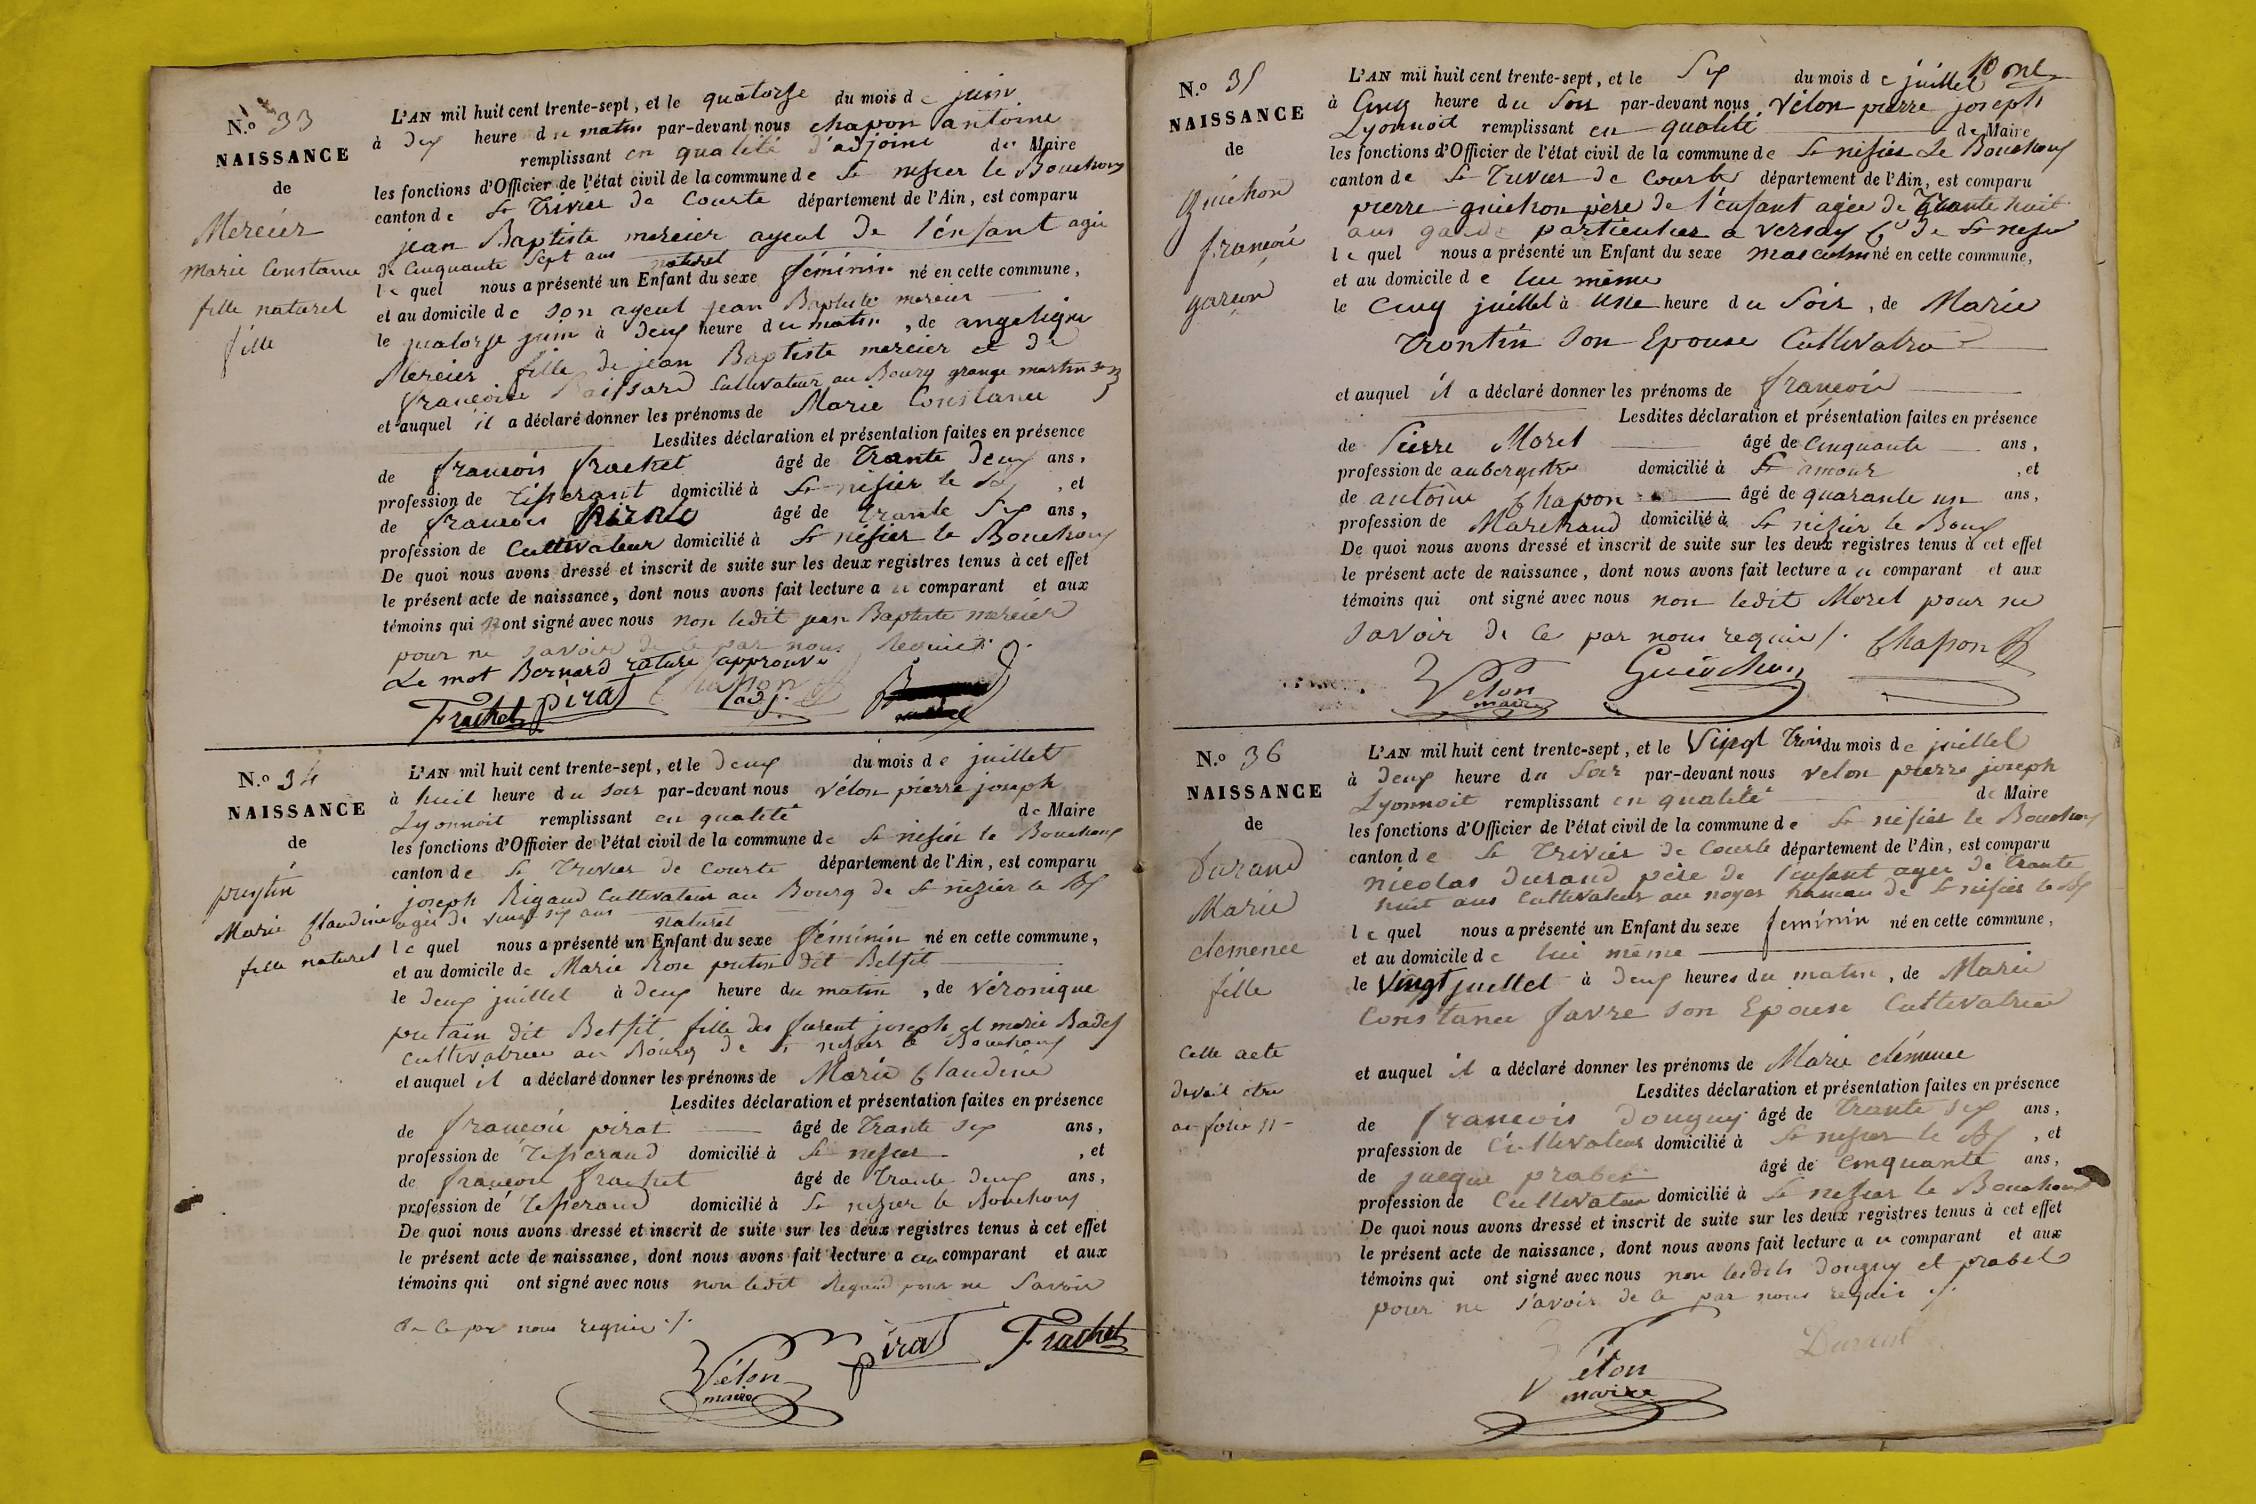 N.o 33
NAISSANCE
de
Mercier
Marie Constance
fille naturel
fille
L'AN mil huit cent trente-sept, et le quatorze du mois de juin
à deux heure du matin par-devant nous chapon antoine
remplissant en qualité d'adjoint de Maire
les fonctions d'Officier de l'état civil de la commune de St nisier le Bouchoux
canton de St Trivier de Courte département de l'Ain, est comparu
jean Baptiste mercier ayeul de l'enfant agée
de Cinquante Sept ans naturel
le quel nous a présenté un Enfant du sexe féminin né en cette commune,
et au domicile de son ayeul jean Baptiste mercier
le quatorze juin à deux heure du matin, de angelique
Mercier fille de jean Baptiste mercier et de
francoise Cultivateur au Bourg grange martin
et auquel il a déclaré donner les prénoms de Marie Constance
Lesdites déclaration et présentation faites en présence
de francois frachet âgé de Trante deux ans,
profession de Tisserant domicilié à St nisier le Bx, et
de francois pirat âgé de trante Six ans,
profession de Cultivateur domicilié à St nisier le Bouchoux
De quoi nous avons dressé et inscrit de suite sur les deux registres tenus à cet effet
le présent acte de naissance, dont nous avons fait lecture a u comparant et aux
témoins qui ont signé avec nous non ledit jean Baptiste mercier
pour ne savoir de ce par nous requis
Le mot Bernard rature approuvé
Frachet pirat Chapon adj.
N.o 34
NAISSANCE
de
puytin
Marie Claudine
fille naturel
L'AN mil huit cent trente-sept, et le deux du mois de juillet
à huit heure du soir par-devant nous vélon pierre joseph
Lyonnoit remplissant en qualité de Maire
les fonctions d'Officier de l'état civil de la commune de St nisier le Bouchoux
canton de St Trivier de Courte département de l'Ain, est comparu
joseph Rigaud Cultivateur au Bourg de St nizier le Bx
agée de vingt six ans naturel
le quel nous a présenté un Enfant du sexe féminin né en cette commune,
et au domicile de Marie Rose putin dit Belfit
le deux juillet à deux heure du matin, de véronique
putain dit Betfit fille des furent joseph et marie
Cultivatrice au Bourg de St nizier le Bouchoux
et auquel il a déclaré donner les prénoms de Marie Claudine
Lesdites déclaration et présentation faites en présence
de francois pirat âgé de Trante six ans,
profession de Tisserand domicilié à St nisier, et
de francois frachet âgé de Trante deux ans,
profession de Tisserand domicilié à St nizier le Bouchoux
De quoi nous avons dressé et inscrit de suite sur les deux registres tenus à cet effet
le présent acte de naissance, dont nous avons fait lecture a au comparant et aux
témoins qui ont signé avec nous non ledit Regaud pour ne Savoir
de ce par nous requis ./.
Vélon maire pirat Frachet
10 
N.o 35
NAISSANCE
de
Guichon
francois
garcon
L'AN mil huit cent trente-sept, et le Six du mois de juillet
à Cinq heure du Soir par-devant nous vélon pierre joseph
Lyonnoit remplissant en qualité de Maire
les fonctions d'Officier de l'état civil de la commune de St nisier Le Bouchoux
canton de St Trivier de Courte département de l'Ain, est comparu
pierre guichon père de l'enfant agée de Trante huit
ans garde particulier a versay Ce de St nizier
le quel nous a présenté un Enfant du sexe masculin né en cette commune,
et au domicile de lui même
le Cinq juillet à une heure du Soir, de Marie
Trontin Son Epouse Cultivatrice
et auquel il a déclaré donner les prénoms de francois
Lesdites déclaration et présentation faites en présence
de Pierre Morel âgé de Cinquante ans,
profession de aubergiste domicilié à St amour, et
de antoine Chapon âgé de quarante un ans,
profession de Marchand domicilié à St nizier le Boux
De quoi nous avons dressé et inscrit de suite sur les deux registres tenus à cet effet
le présent acte de naissance, dont nous avons fait lecture a u comparant et aux
témoins qui ont signé avec nous non ledit Morel pour ne
savoir de ce par nous requis /.
Vélon maire Guichon Chapon
N.o 36
NAISSANCE
de
Durand
Marie
clemence
fille
Cette acte
devait etre
au folio 11
L'AN mil huit cent trente-sept, et le Vingt Trois du mois de juillet
à deux heure du Soir par-devant nous velon pierre joseph
Lyonnoit remplissant en qualité de Maire
les fonctions d'Officier de l'état civil de la commune de St nisier le Bouchoux
canton de St Trivier de Courte département de l'Ain, est comparu
nicolas Durand père de l'enfant agée de trante
huit ans Cultivateur au noyer hameau de St nisier le Bx
le quel nous a présenté un Enfant du sexe feminin né en cette commune,
et au domicile de lui même
le Vingt juillet à deux heures du matin, de Marie
Constance favre son Epouse Cultivatrice
et auquel il a déclaré donner les prénoms de Marie clémence
Lesdites déclaration et présentation faites en présence
de francois Douguy âgé de trante six ans,
profession de Cultivateur domicilié à St nisier le Bx, et
de jacque prabel âgé de cinquante ans,
profession de Cultivateur domicilié à St nisier le Bouchoux
De quoi nous avons dressé et inscrit de suite sur les deux registres tenus à cet effet
le présent acte de naissance, dont nous avons fait lecture a u comparant et aux
témoins qui ont signé avec nous non lesdits Douguy et prabel
pour ne savoir de ce par nous requis ./.
Vélon maire Durand